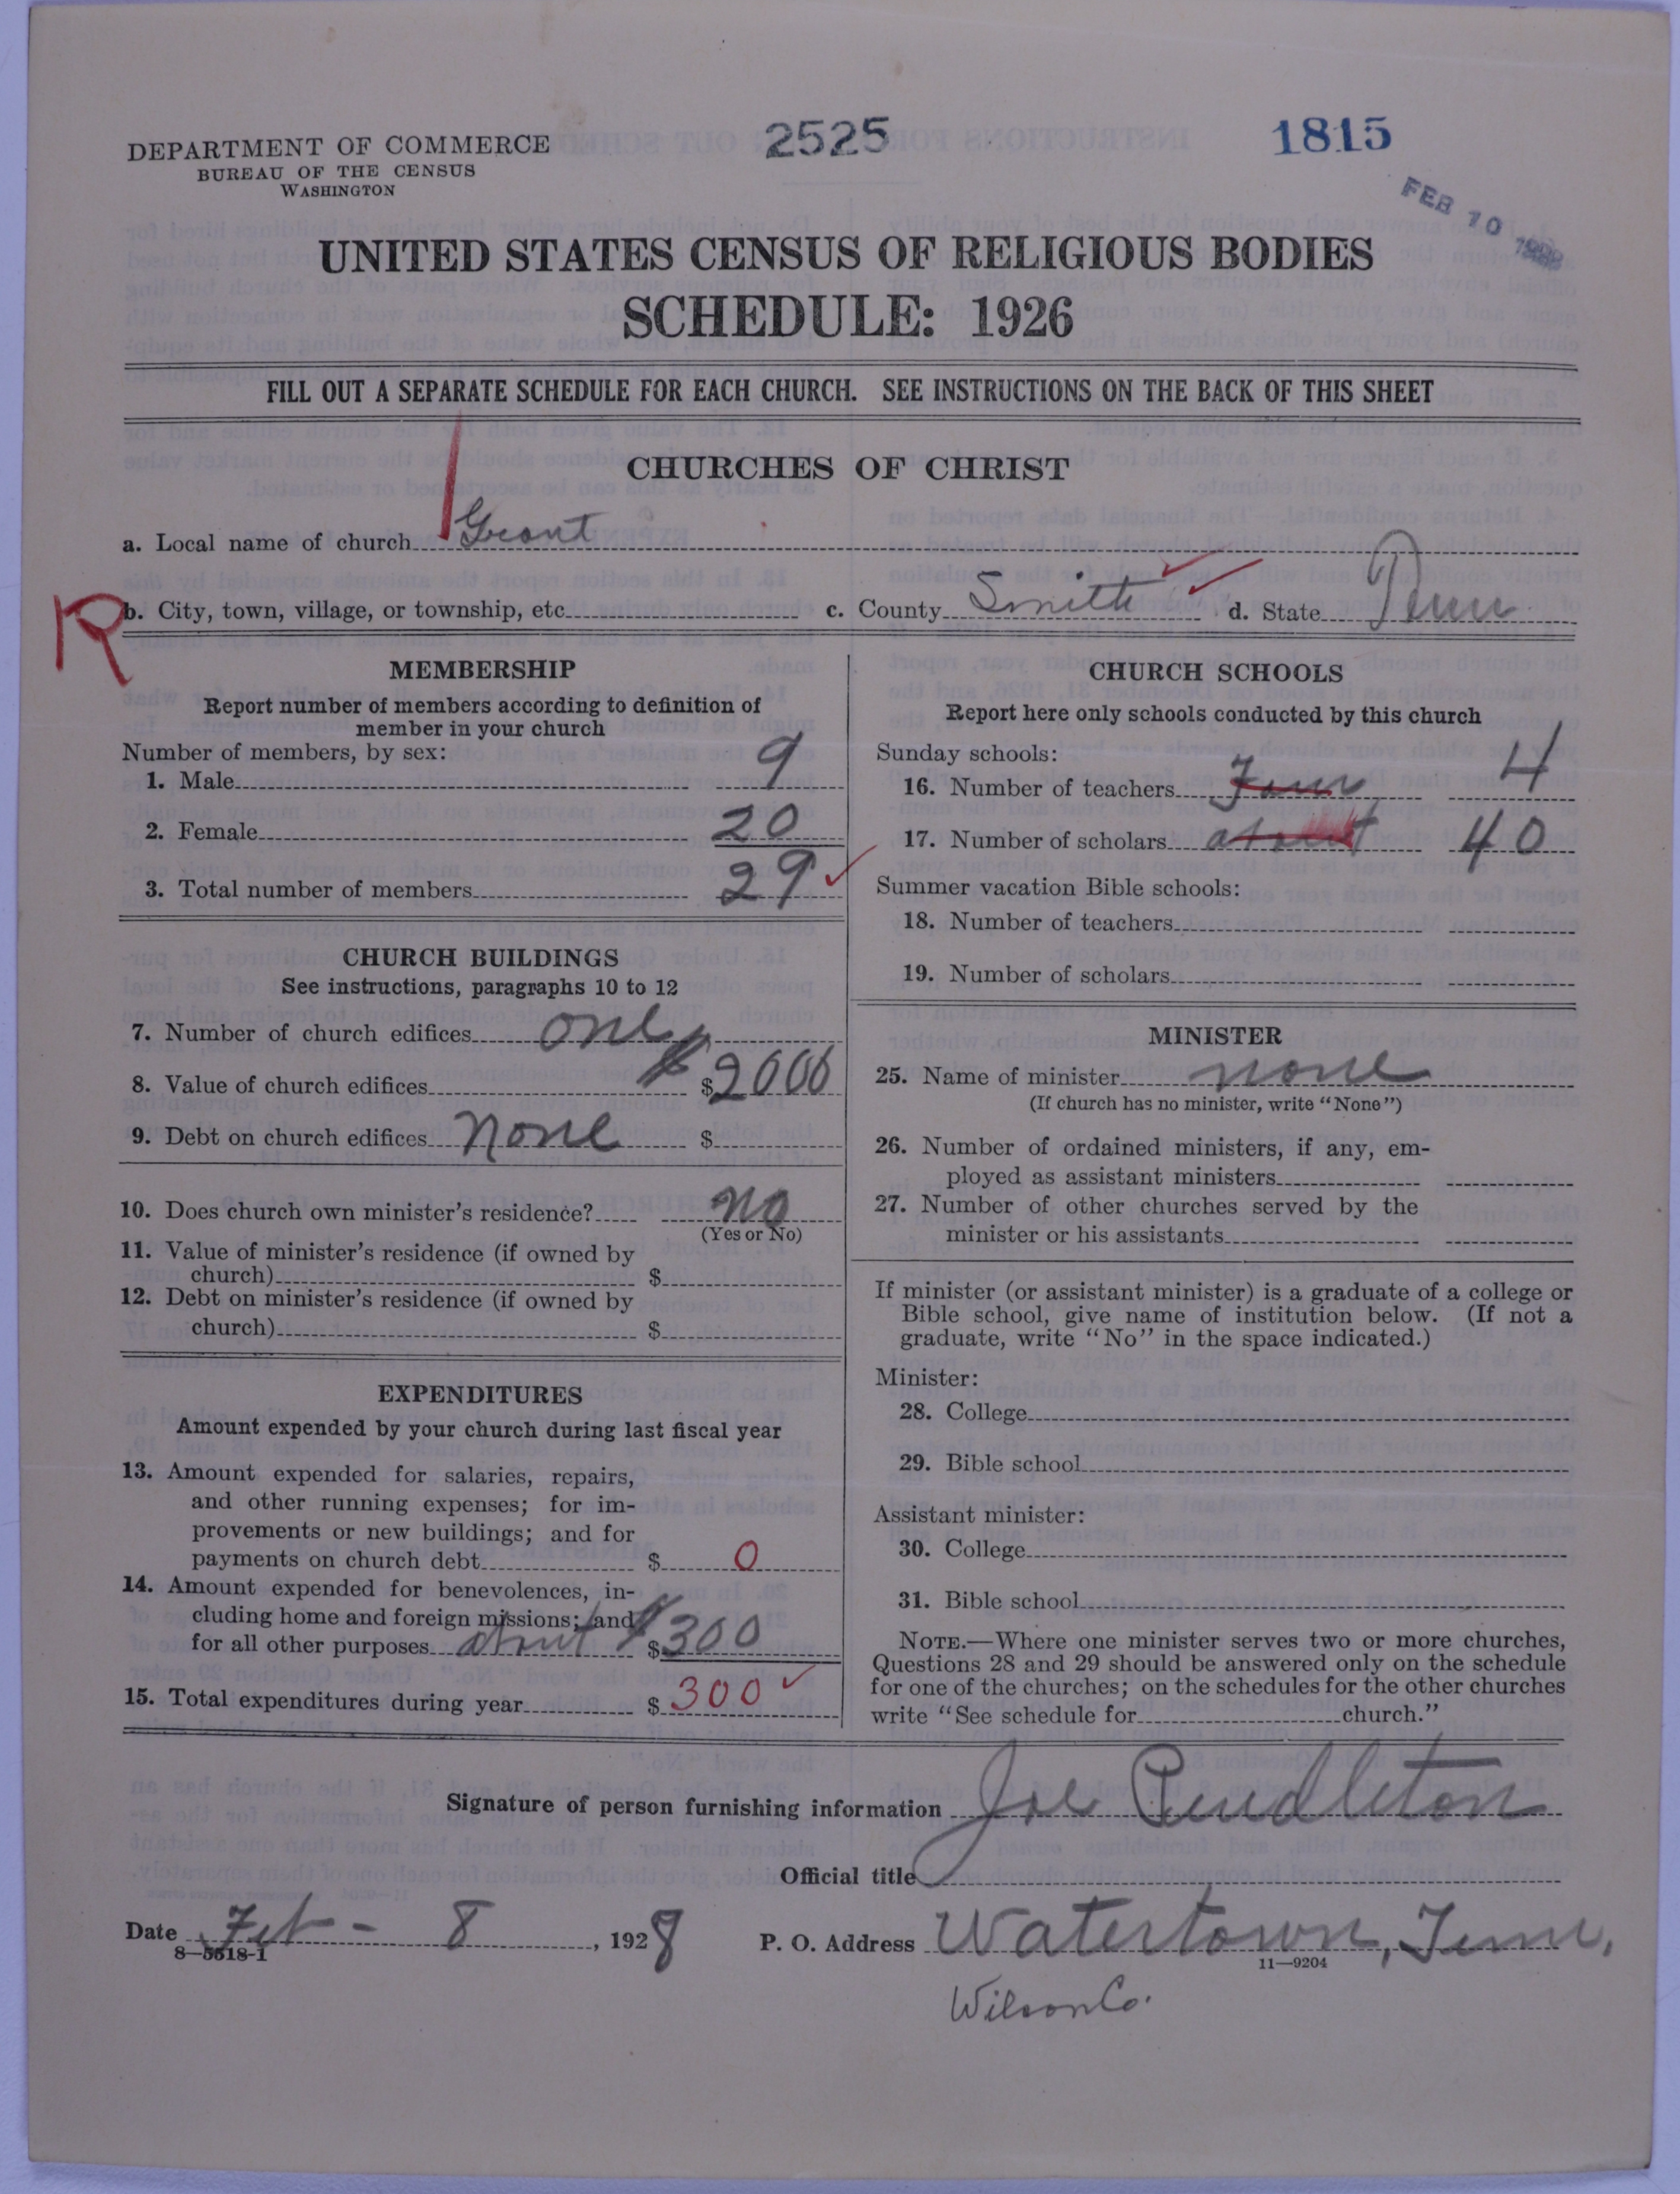 DEPARTMENT OF COMMERCE
BUREAU OF THE CENSUS
WASHINGTON
2525
1815
FEB 10 1928
UNITED STATES CENSUS OF RELIGIOUS BODIES
SCHEDULE: 1926
FILL OUT A SEPARATE SCHEDULE FOR EACH CHURCH. SEE INSTRUCTIONS ON THE BACK OF THIS SHEET
CHURCHES OF CHRIST
a. Local name of church Grant
R
b. City, town, village, or township, etc. c. County Smith d. State Tenn
MEMBERSHIP
Report number of members according to definition of
member in your church
Number of members, by sex:
1. Male 9
2. Female 20
3. Total number of members 29
CHURCH BUILDINGS
See instructions, paragraphs 10 to 12
7. Number of church edifices one
8. Value of church edifices $ $2000
9. Debt on church edifices none $
10. Does church own minister's residence? no
(Yes or No)
11. Value of minister's residence (if owned by
church) $
12. Debt on minister's residence (if owned by
church) $
EXPENDITURES
Amount expended by your church during last fiscal year
13. Amount expended for salaries, repairs,
and other running expenses; for im-
provements or new buildings; and for
payments on church debt $ 0
14. Amount expended for benevolences, in-
cluding home and foreign missions; and
for all other purposes about $ $300
15. Total expenditures during year $ 300
CHURCH SCHOOLS
Report here only schools conducted by this church
Sunday schools:
16. Number of teachers Four 4
17. Number of scholars about 40
Summer vacation Bible schools:
18. Number of teachers
19. Number of scholars
MINISTER
25. Name of minister none
(If church has no minister, write "None")
26. Number of ordained ministers, if any, em-
ployed as assistant ministers
27. Number of other churches served by the
minister or his assistants
If minister (or assistant minister) is a graduate of a college or
Bible school, give name of institution below. (If not a
graduate, write "No" in the space indicated.)
Minister:
28. College
29. Bible school
Assistant minister:
30. College
31. Bible school
NOTE.—Where one minister serves two or more churches,
Questions 28 and 29 should be answered only on the schedule
for one of the churches; on the schedules for the other churches
write "See schedule for church."
Signature of person furnishing information Joe Pendleton
Official title
Date Feb - 8, 1928 P. O. Address Watertown, Tenn,
8—5518-1
11—9204
Wilson Co.